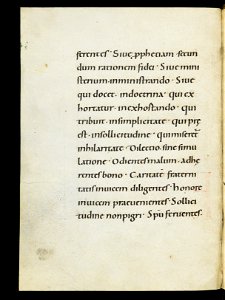 ferentes · Siue p̱phetiam secun
dum rationem fidei · Siue mini
sterium inministrando · Siue
qui docet · indoctrina · qui ex
hortatur · inexhostando · qui
tribuit · insimplicitate · qui prę
est · insollicitudine · qui miseret̄
inhilaritate · Dilectio · sine simu
latione · Odientes malum · adhe
rentes bono · Caritatē fraterni
tatis inuicem diligentes · honore
inuicem praeuenientes · Sollici
tudine nonpigri · Sp̄u feruentes ·